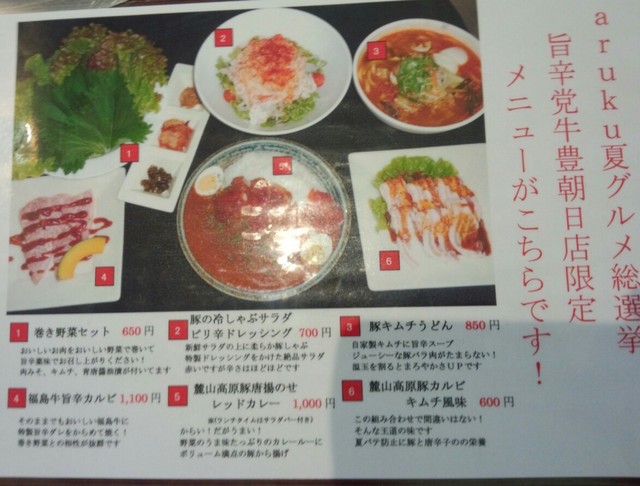 aruku夏グルメ総選挙
旨辛党牛豊朝日店限定
メニューがこちらです！
1
2
3
4
5
6
1 巻き野菜セット 650円
おいしいお肉をおいしい野菜で巻いて
旨辛薬味でお召し上がりください！
肉みそ、キムチ、青唐醤油漬が付いてます
2 豚の冷しゃぶサラダ
ピリ辛ドレッシング 700円
新鮮サラダの上に柔らか豚しゃぶ
特製ドレッシングをかけた絶品サラダ
赤いですが辛さはほどほどです
3 豚キムチうどん 850円
自家製キムチに旨辛スープ
ジューシーな豚バラ肉がたまらない！
温玉を割るとまろやかさUPです
4 福島牛旨辛カルビ 1,100円
そのままでもおいしい福島牛に
特製旨辛ダレをからめて焼く！
巻き野菜との相性が抜群です
5 麓山高原豚唐揚のせ
レッドカレー 1,000円
(ランチタイムはサラダバー付き)
からい！だがうまい！
野菜のうま味たっぷりのカレールーに
ボリューム満点の豚から揚げ
6 麓山高原豚カルビ
キムチ風味 600円
この組み合わせで間違いはない！
そんな王道の味です
夏バテ防止に豚と唐辛子のの栄養